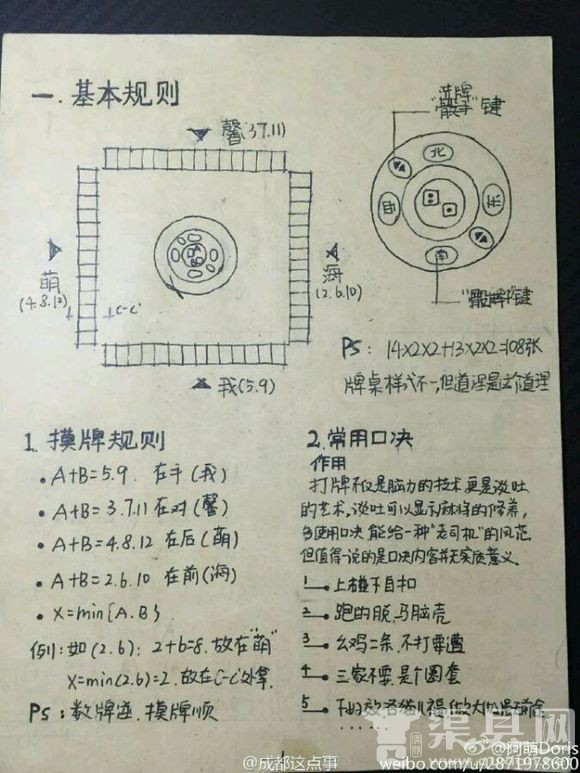 一.基本规则
馨(3.7.11)
萌
(4.8.12)
C-C'
海
(2.6.10)
我(5.9)
洗牌
"骰子"键
北
西
东
南
键
PS: 14×2×2+13×2×2=108张
牌桌样式不一,但道理是这个道理
1. 摸牌规则
• A+B=5.9 在手(我)
• A+B=3.7.11 在对(馨)
• A+B=4.8.12 在后(萌)
• A+B=2.6.10 在前(海)
• X=min{A.B}
例:如(2.6): 2+6=8. 放在"萌"
X=min(2.6)=2. 放在C-C'处拿.
PS: 数牌逆.摸牌顺
2.常用口决
作用
打牌不仅是脑力的技术.更是谈吐
的艺术,谈吐可以显示麻将的修养,
多使用口决能给一种"老司机"的风范
但值得一说的是口决内容并无实质意义.
1 上碰下自扣
2 跑的脱,马脑壳
3 幺鸡二条,不打要遭
4 三家不要,是个圈套
5
......
@成都这点事
渠县网
@阿萌Doris
weibo.com/u/2871978600